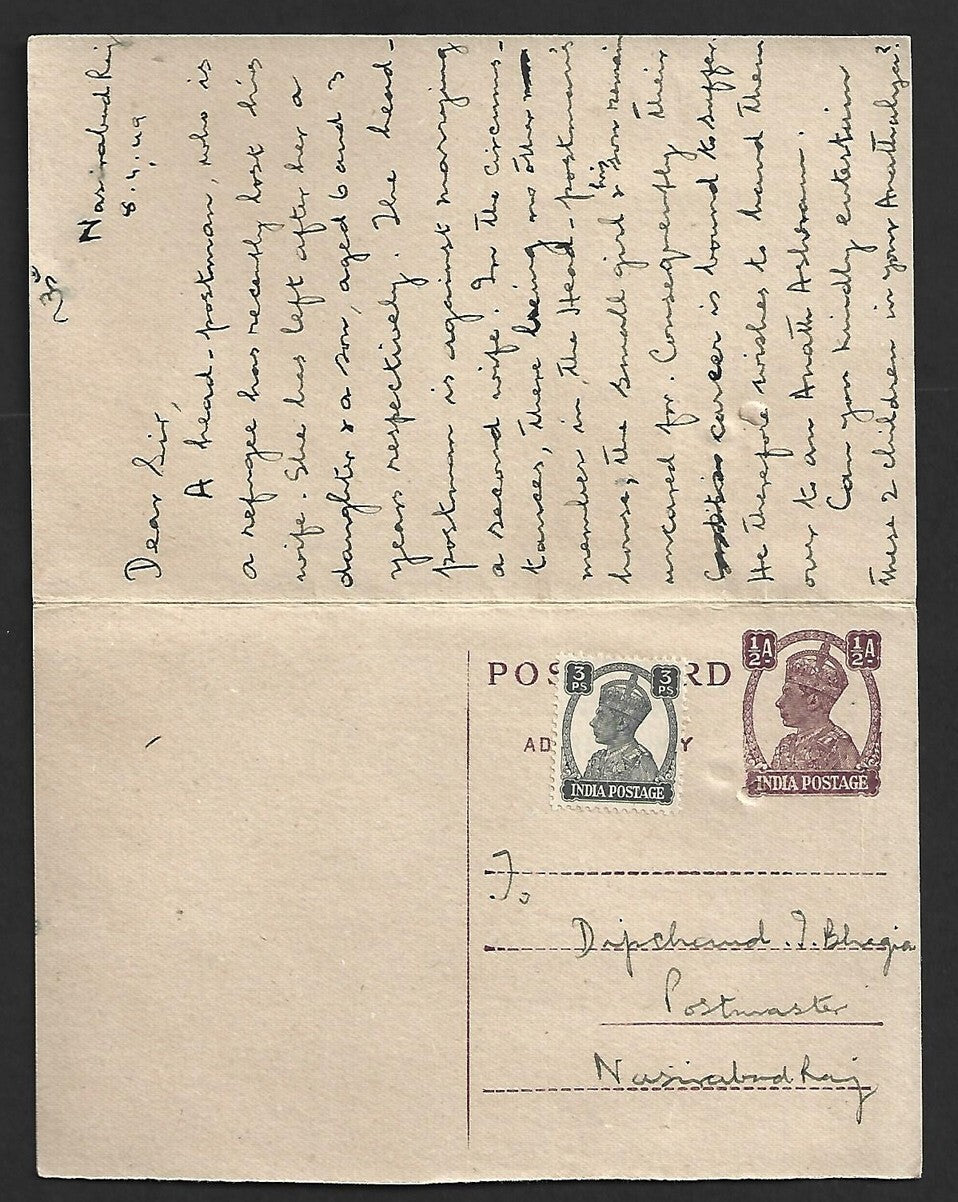 ॐ
Nasirabad Raj
8.4.49
Dear Sir,
A head-postman, who is
a refugee has recently lost his
wife. She has left after her a
daughter & a son, aged 6 and 3
years respectively. The head-
postman is against marrying
a second wife. In the circums-
tances, there being no other
member in the Head-postman's
house, the small girl & his son remain
uncared for. Consequently their
career is bound to suffer.
He therefore wishes to hand them
over to an Anath Ashram.
Can you kindly entertain
these 2 children in your Anathalya?
POS RD
AD Y
3 PS 3 PS
INDIA POSTAGE
½A ½A
INDIA POSTAGE
To
Dipchand. T. Bhagia
Postmaster
Nasirabad Raj